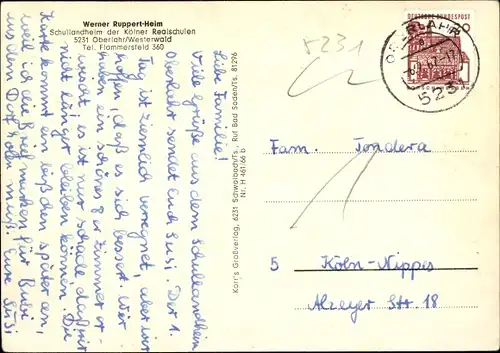 Werner Ruppert-Heim
Schullandheim der Kölner Realschulen
5231 Oberlahr/Westerwald
Tel. Flammersfeld 360
Liebe Familie!
Viele Grüße aus dem Schullandheim
Oberlahr sendet Euch Susi. Der 1.
Tag ist ziemlich verregnet, aber wir
hoffen, daß es sich bessert. Wir
haben ein schönes 8er Zimmer er-
wischt es ist nur schade, daß wir
nicht länger bleiben können. Die
Karte kommt ein bißchen später an,
weil ich die Briefmarken für Bubi
aus dem Dorf holen muß. Eure Susi
Korr's Großverlag, 6231 Schwalbach/Ts., Ruf Bad Soden/Ts. 81296
Nr. H 461/66 b
5231
DEUTSCHE BUNDESPOST
20
OBERLAHR
523
Fam. Tondera
5 Köln-Nippes
Alzeyer Str. 18